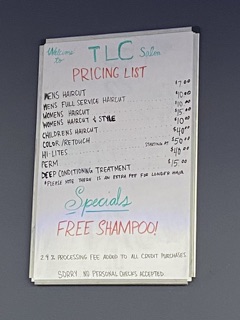 Welcome to TLC Salon
PRICING LIST
MENS HAIRCUT $7.00
MENS FULL SERVICE HAIRCUT $10.00
WOMENS HAIRCUT $10.00
WOMENS HAIRCUT & STYLE $15.00
CHILDRENS HAIRCUT $10.00
COLOR/RETOUCH $40.00
HI-LITES STARTING AT $50.00
PERM $40.00
DEEP CONDITIONING TREATMENT $15.00
*PLEASE NOTE THERE IS AN EXTRA FEE FOR LONGER HAIR
Specials
FREE SHAMPOO!
2.9% PROCESSING FEE ADDED TO ALL CREDIT PURCHASES
SORRY, NO PERSONAL CHECKS ACCEPTED